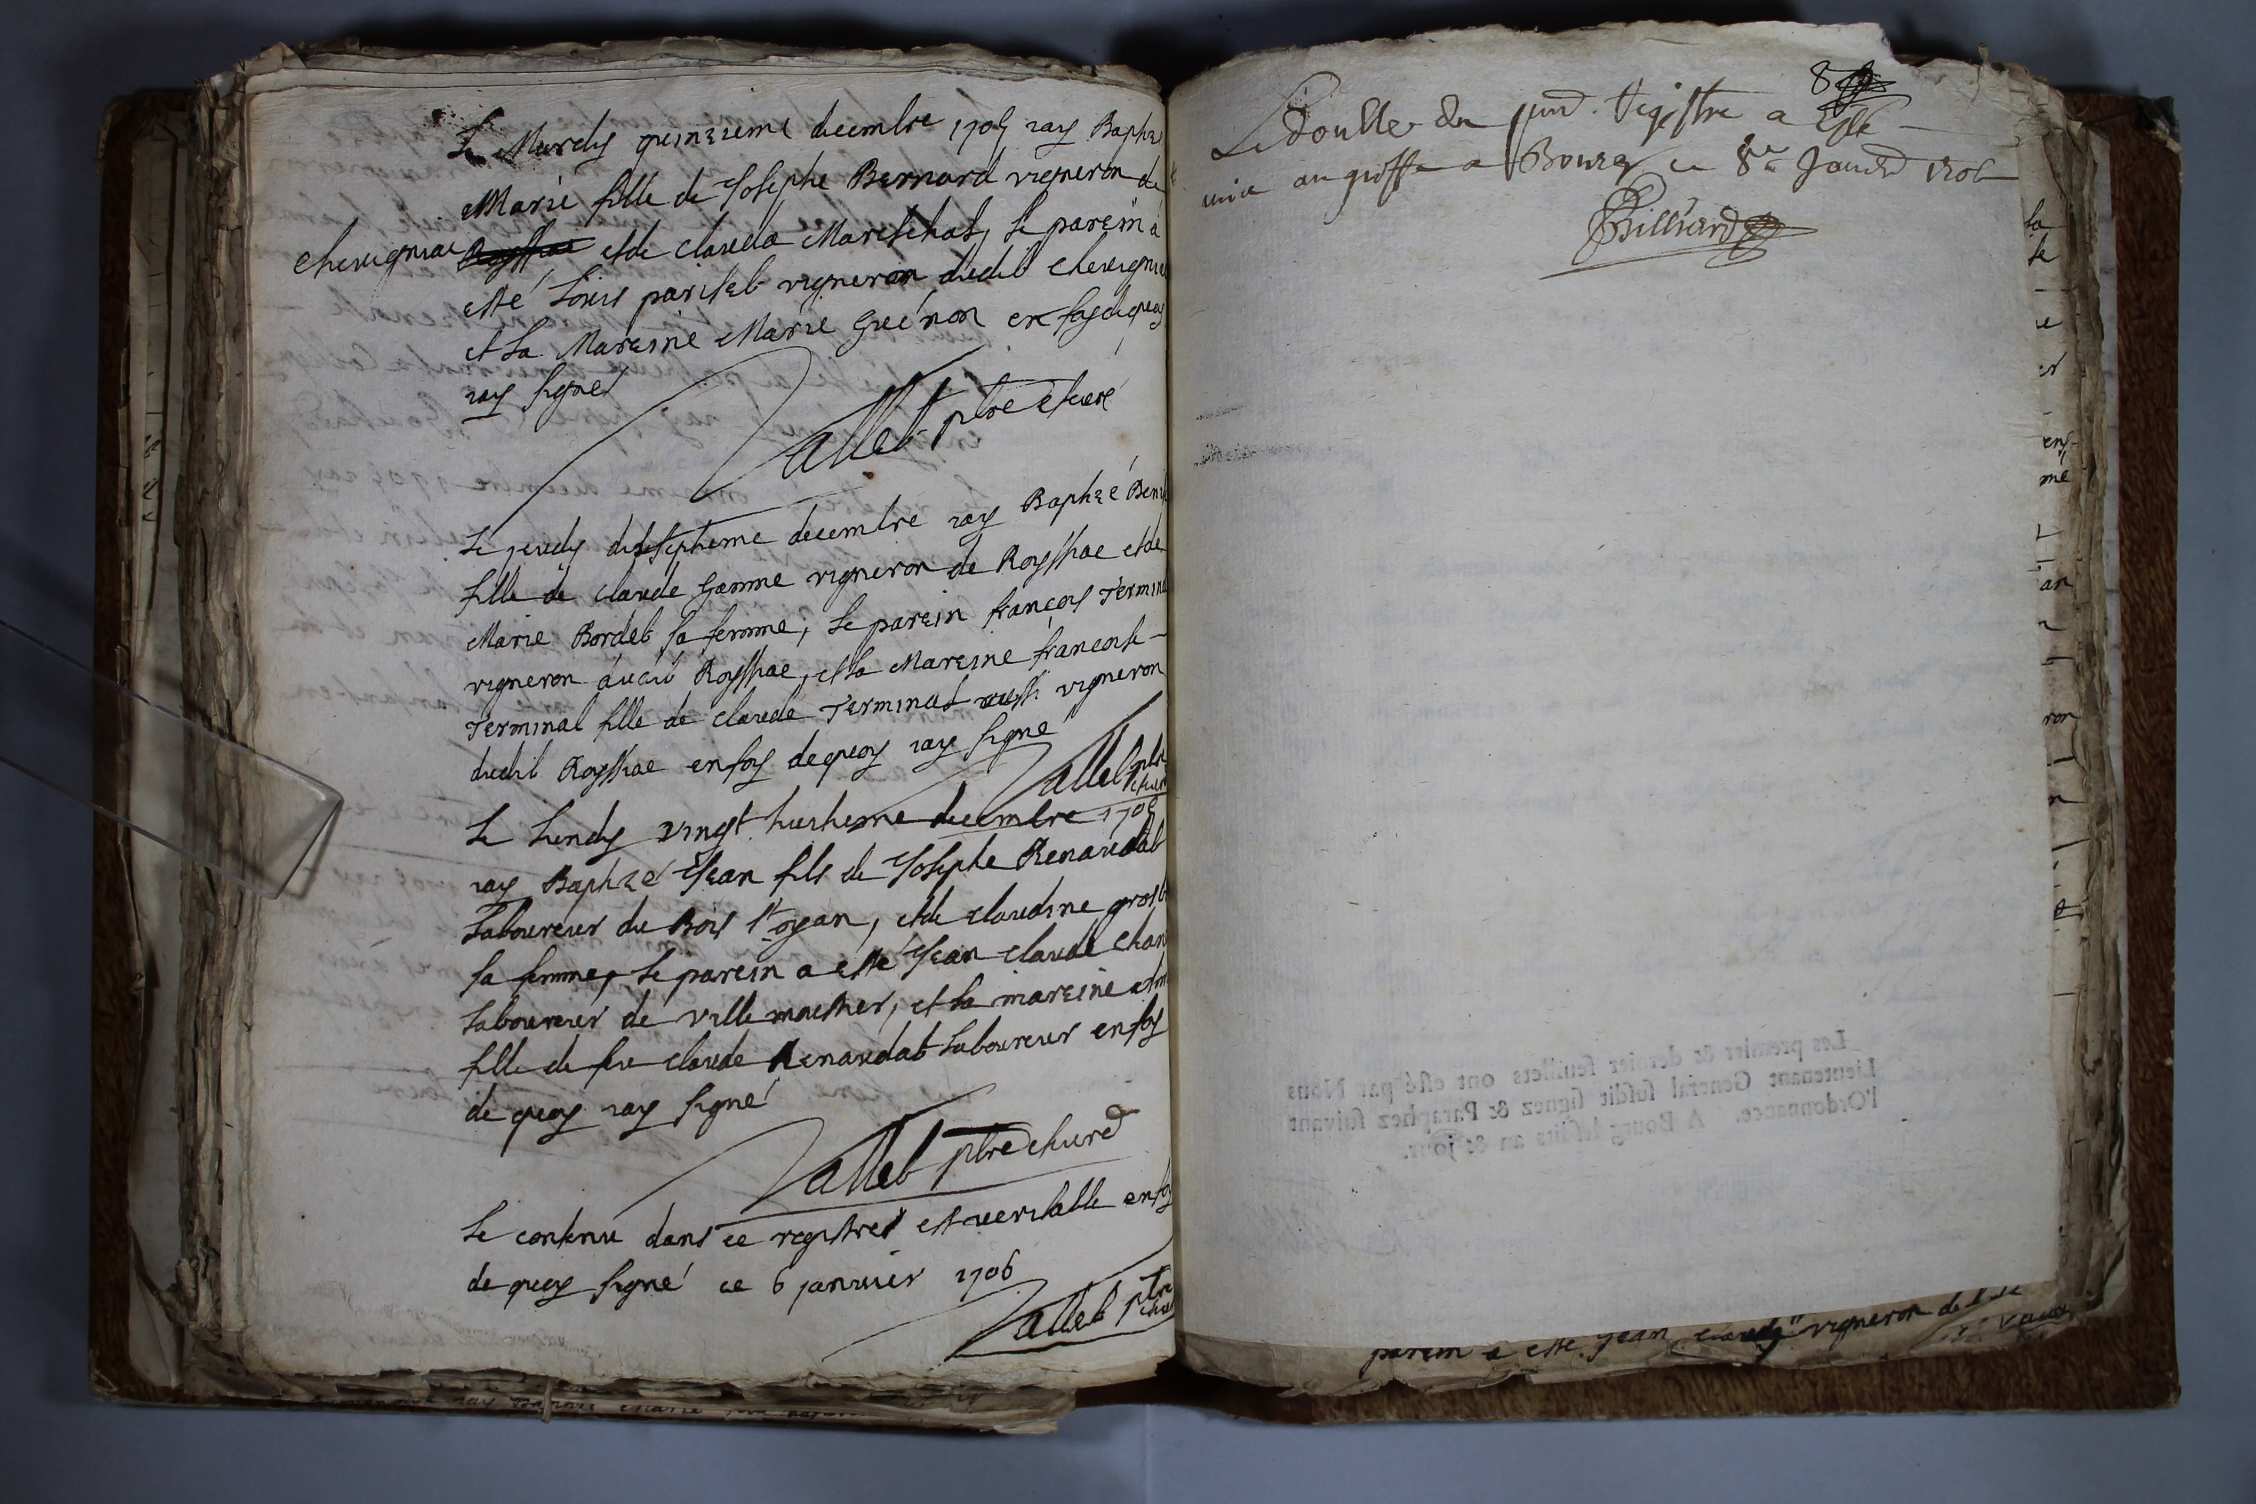 Le Mardy quinzieme decembre 1705 iay Baptzé
Marie fille de Josephe Bernard vigneron de
chevignac et de clauda Mareschal, le parein a
esté Louis pariset vigneron dudit chevignac
et la Mareine Marie Guénon en foy de quoy
iay signé
Vallet ptre et curé
Le jeudy dixseptieme decembre iay Baptzé Benoi
fille de claude Gamme vigneron de Royssiac et de
Marie Bordet sa femme, le parein françois Terminal
vigneron audit Royssiac, et la Mareine françoise
Terminal fille de claude Terminal aussi vigneron
dudit Royssiac en foy de quoy iay signé
Vallet ptre et curé
Le Lundy vingt huitieme decembre 1705
iay Baptzé Jean fils de Josephe Renaudat
Laboureur du Bois st oyan, et de claudine gros
sa femme, le parein a esté Jean claude chan
Laboureur de ville moustier, et la mareine
fille de feu claude Renaudat Laboureur en foy
de quoy iay signé
Vallet ptre et curé
Le contenu dans ce registre est veritable en foy
de quoy signé ce 6 janvier 1706
Vallet ptre
Le double du pnt Registre a esté
mis au greffe a Bourg ce 8e Janvr 1706
Billiard
Les premier & dernier feuillets ont esté par Nous
Lieutenant General susdit signez & Paraphez suivant
l'Ordonnance. A Bourg lesdits an & jour.
parein a esté Jean vigneron de